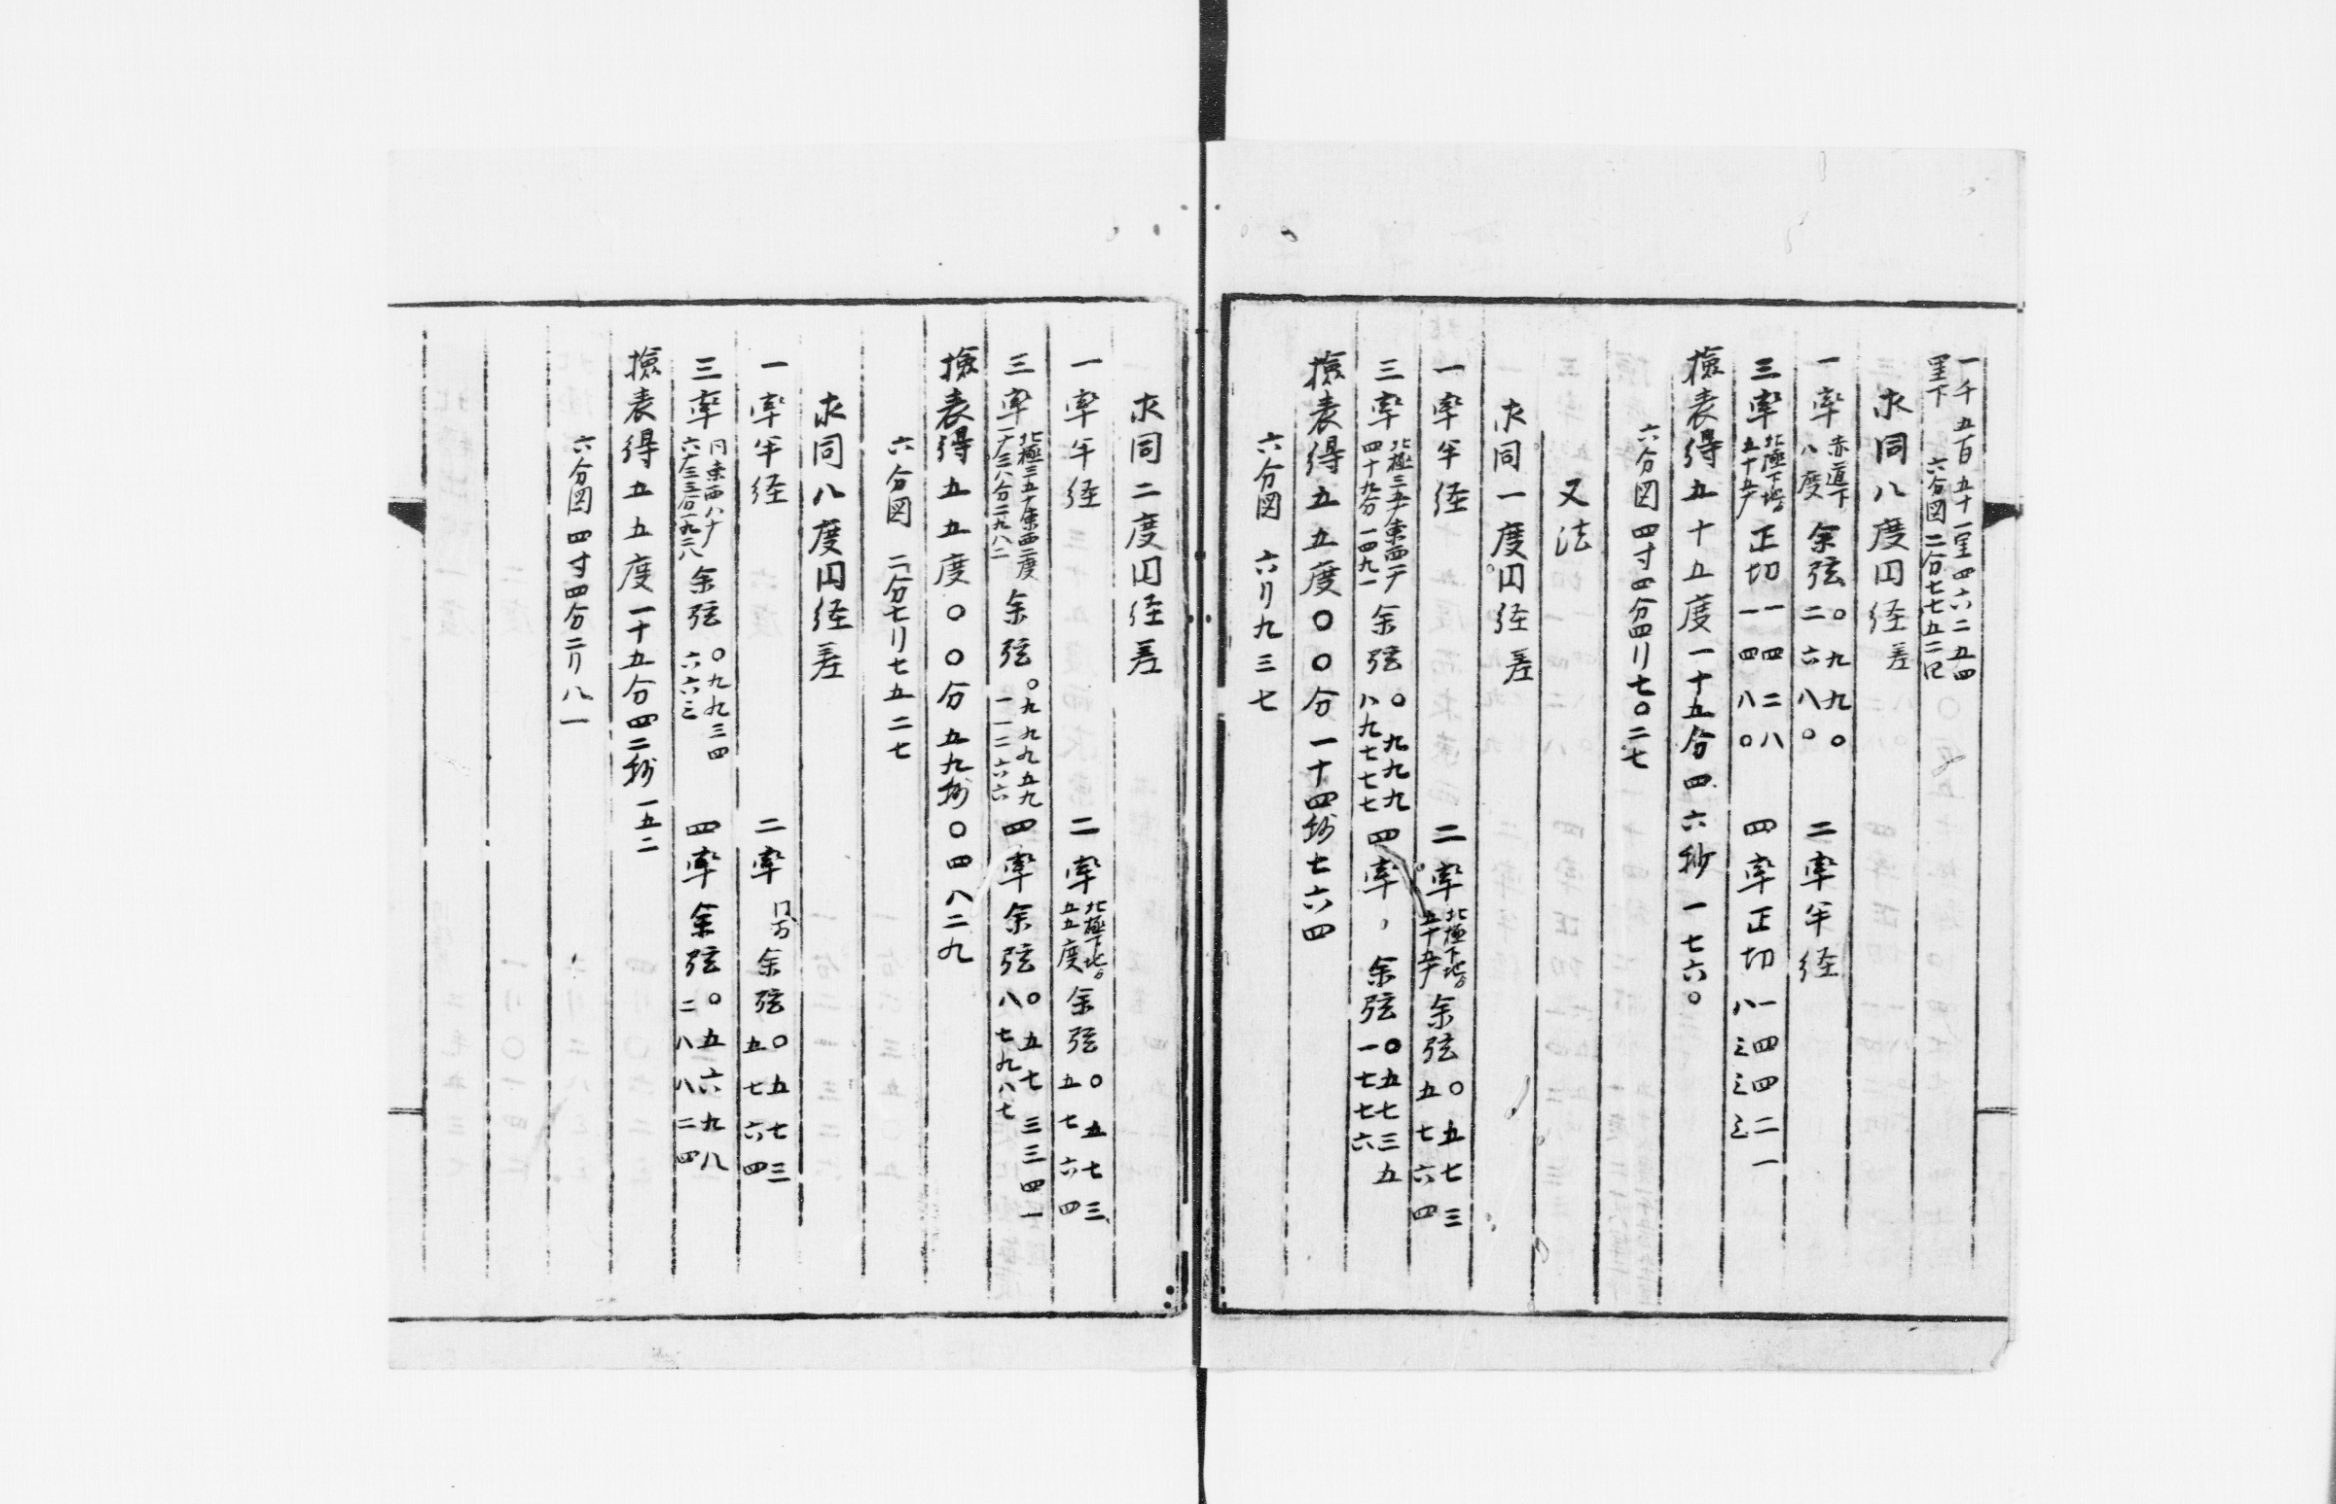 一千五百五十一里四六二五四
里下 六分図二分七七五二四
求同八度円径差
一率 赤道下八度 余弦〇九九〇二六八〇 二率半径
三率 北極下地五十五度 正切一四二八一四八〇 四率正切一四四二一八三三三
撿表得五十五度一十五分四六秒一七六〇
六分図四寸四分四リ七〇二七
又法
求同一度円径差
一率半径 二率 北極下地五十五度 余弦〇五七三五七六四
三率 北極三五度東西一度四十九分一四九一 余弦〇九九九八九七七七 四率余弦〇五七三五一七七六
撿表得五五度〇〇分一十四秒七六四
六分図 六リ九三七
求同二度円径差
一率半径 二率 北極下地五五度 余弦〇五七三五七六四
三率 北極三五度東西二度一度三八分二九八二 余弦〇九九九五九一一二六六 四率余弦〇五七三三四一八七九八七
撿表得五五度〇〇分五九秒〇四八二九
六分図 二分七リ七五二七
求同八度円径差
一率半径 二率 同前 余弦〇五七三五七六四
三率 同東西八度六度三三分一九二八 余弦〇九九三四六六三 四率余弦〇五六九八二八八二四
撿表得五五度一十五分四二秒一五二
六分図四寸四分二リ八一